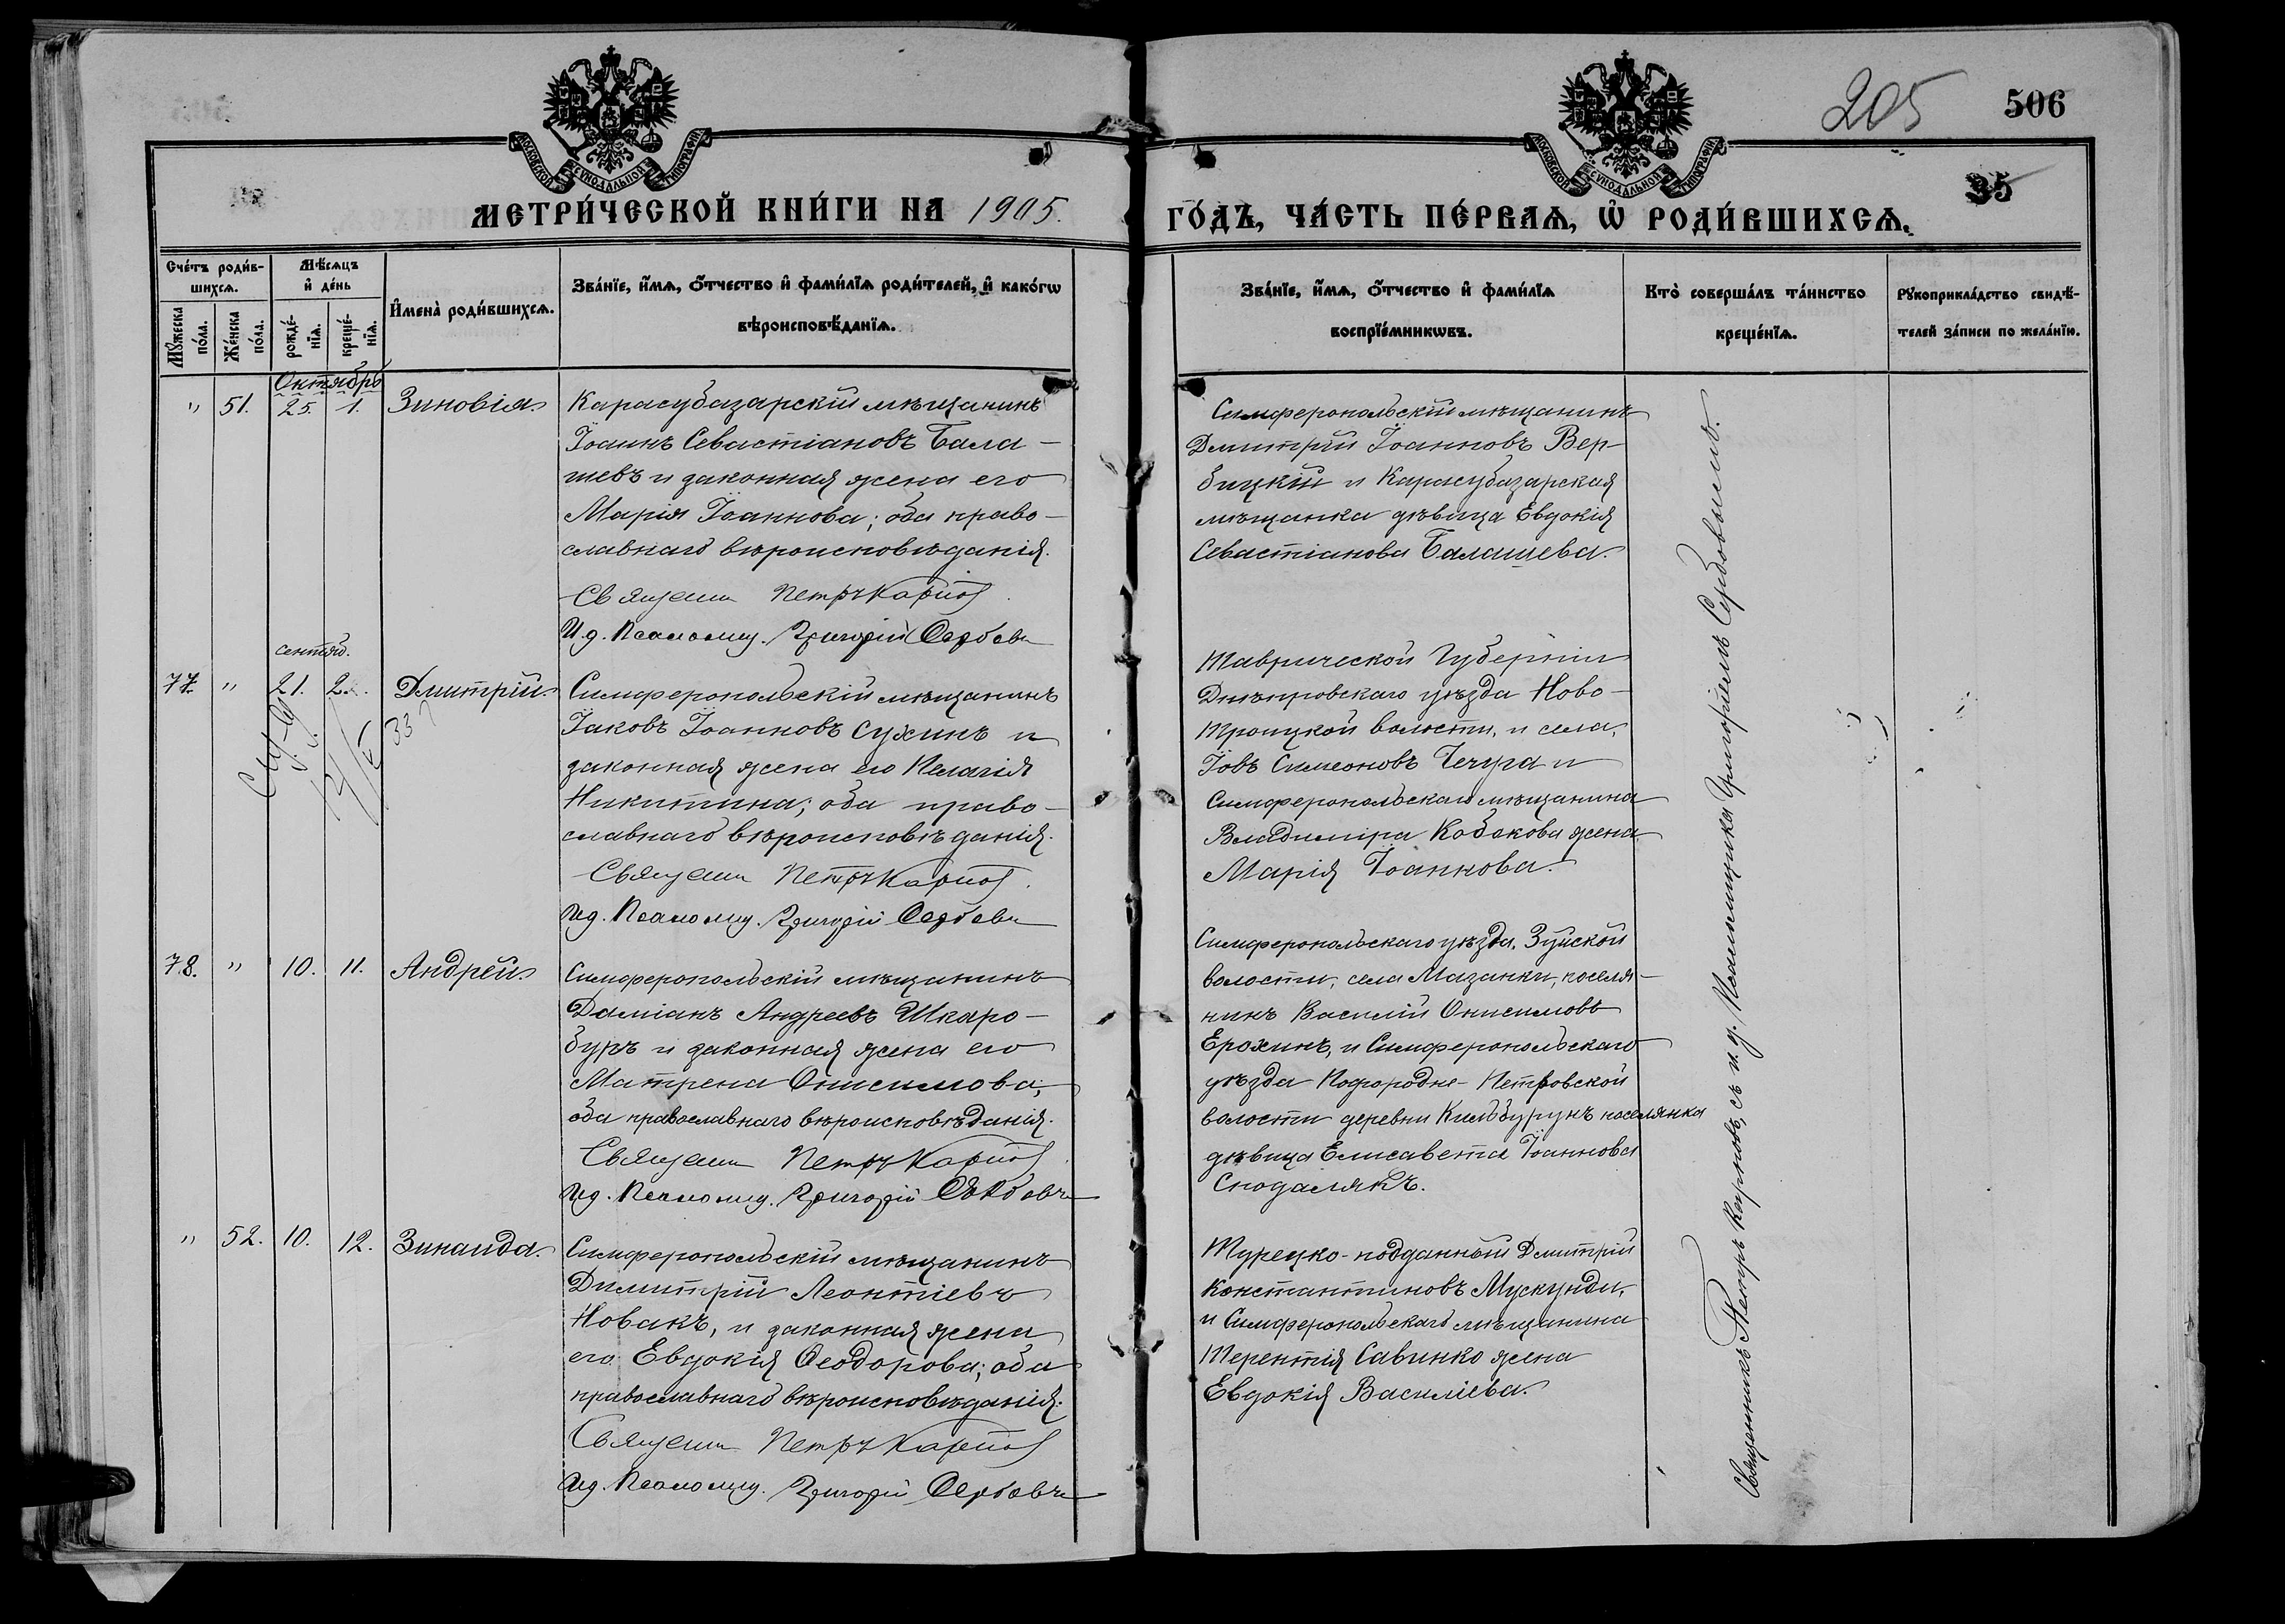 205
506
35
МОСКОВСКОЙ СѴНОДАЛЬНОЙ ТИПОГРАФІИ
МОСКОВСКОЙ СѴНОДАЛЬНОЙ ТИПОГРАФІИ
МЕТРИ́ЧЕСКОЙ КНИ́ГИ НА 1905.
ГО́ДЪ, ЧА́СТЬ ПЕ́РВАѦ, Ѡ҆ РОДИ́ВШИХСѦ.
Сче́тъ роди́в-
шихсѧ.
Мꙋ́жеска по́ла.
Же́нска по́ла.
Мѣ́сѧцъ
и҆ де́нь
рожде́-
нїѧ.
креще́-
нїѧ.
И҆мена̀ роди́вшихсѧ.
Зва́нїе, и҆́мѧ, ѻ҆́тчество и҆ фами́лїѧ роди́телей, и҆ како́гѡ
вѣроисповѣ́данїѧ.
Зва́нїе, и҆́мѧ, ѻ҆́тчество и҆ фами́лїѧ
воспрїе́мникѡвъ.
Кто̀ соверша́лъ та́инство
креще́нїѧ.
Рꙋкоприкла́дство свидѣ́-
телей за́писи по жела́нїю.
Октябрь
" 51. 25. 1. Зиновія.
Карасубазарскій мѣщанинъ
Іоаннъ Севастіановъ Бала-
шевъ и законная жена его
Марія Іоаннова; оба право-
славнаго вѣроисповѣданія.
Священн Петръ Карпов
И.д. Псаломщ. Григорій Сербовъ
Симферопольскій мѣщанинъ
Дмитрій Іоанновъ Вер-
бицкій и Карасубазарская
мѣщанка дѣвица Евдокія
Севастіанова Балашева.
сентяб.
77. " 21. 2. Дмитрій.
33
Симферопольскій мѣщанинъ
Іаковъ Іоанновъ Сухинъ и
законная жена его Пелагія
Никитина; оба право-
славнаго вѣроисповѣданія.
Священн Петръ Карпов
И.д. Псаломщ. Григорій Сербовъ
Таврической Губерніи
Днѣпровскаго уѣзда Ново-
Троицкой волости, и села,
Іовъ Симеоновъ Чечура и
Симферопольскаго мѣщанина
Владиміра Кобокова жена
Марія Іоаннова.
78. " 10. 11. Андрей.
Симферопольскій мѣщанинъ
Даміанъ Андреевъ Шкаро-
буръ и законная жена его
Матрена Онисимова;
оба православнаго вѣроисповѣданія.
Священн Петръ Карпов
И.д. Псаломщ. Григорій Сербовъ
Симферопольскаго уѣзда, Зуйской
волости, села Мазанки, поселя-
нинъ Василій Онисимовъ
Ерохинъ, и Симферопольскаго
уѣзда Подгородне-Петровской
волости деревни Кильбурунъ поселянка
дѣвица Елисавета Іоаннова
Сподалякъ.
" 52. 10. 12. Зинаида.
Симферопольскій мѣщанинъ
Димитрій Леонтіевъ
Новакъ, и законная жена
его Евдокія Ѳеодорова; оба
православнаго вѣроисповѣданія.
Священн Петръ Карпов
И.д. Псаломщ. Григорій Сербовъ
Турецко-подданный Дмитрій
Константиновъ Мускунди,
и Симферопольскаго мѣщанина
Терентія Савинко жена
Евдокія Василіева.
Священникъ Петръ Карповъ, съ и.д. Псаломщика Григоріемъ Сербовымъ.